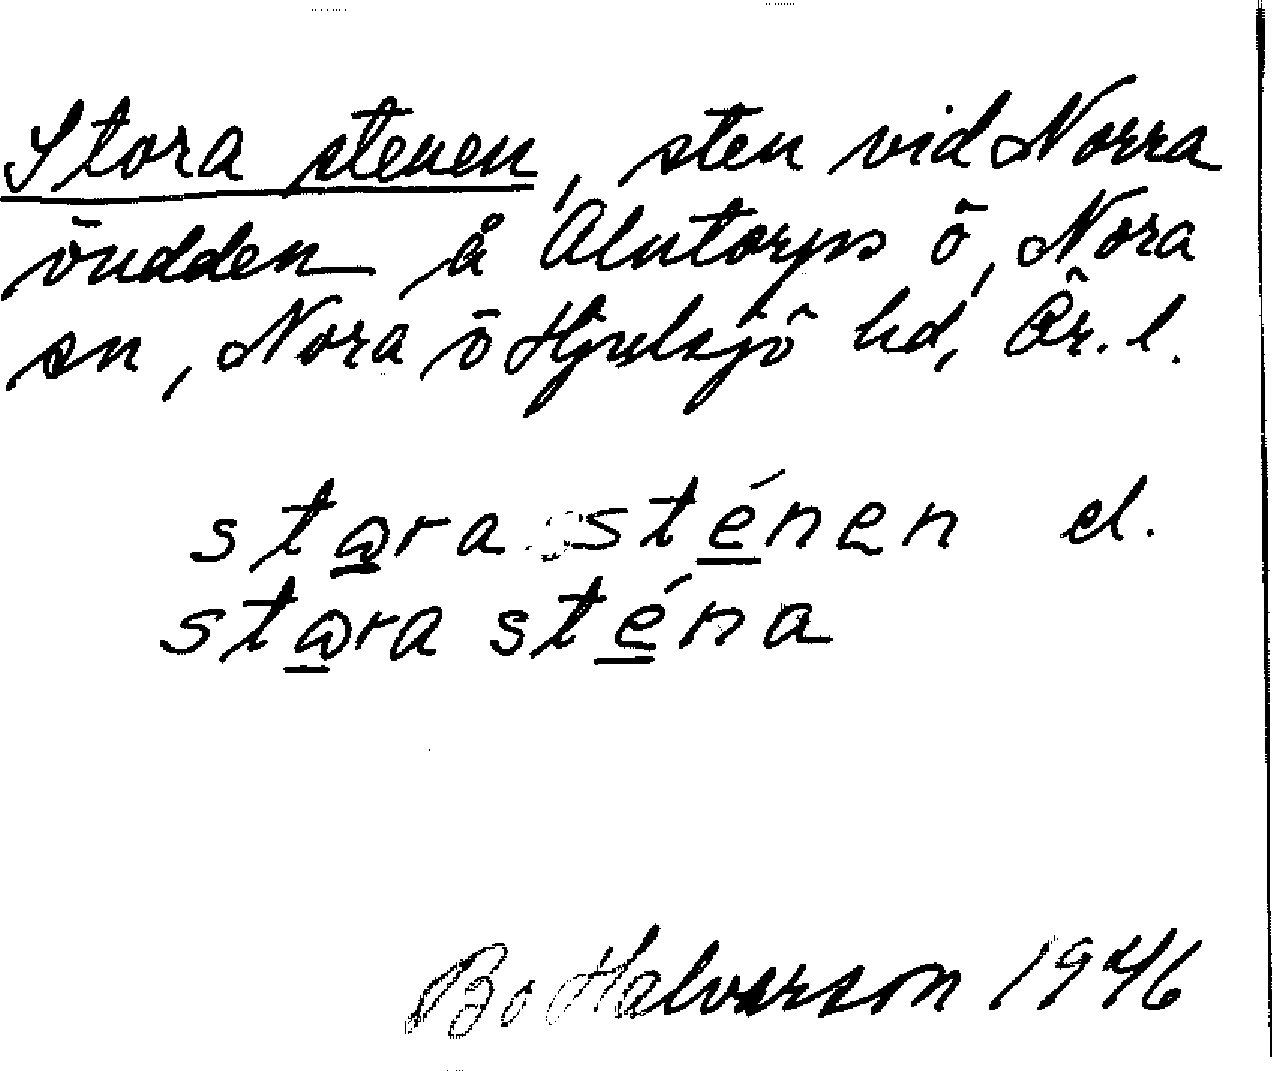 Stora stenen, sten vid Norra
öudden å Alntorps ö, Nora
sn, Nora o Hjulsjö hd, Ör. l.
stora sténen el.
stora sténa
Bo Halvarson 1946